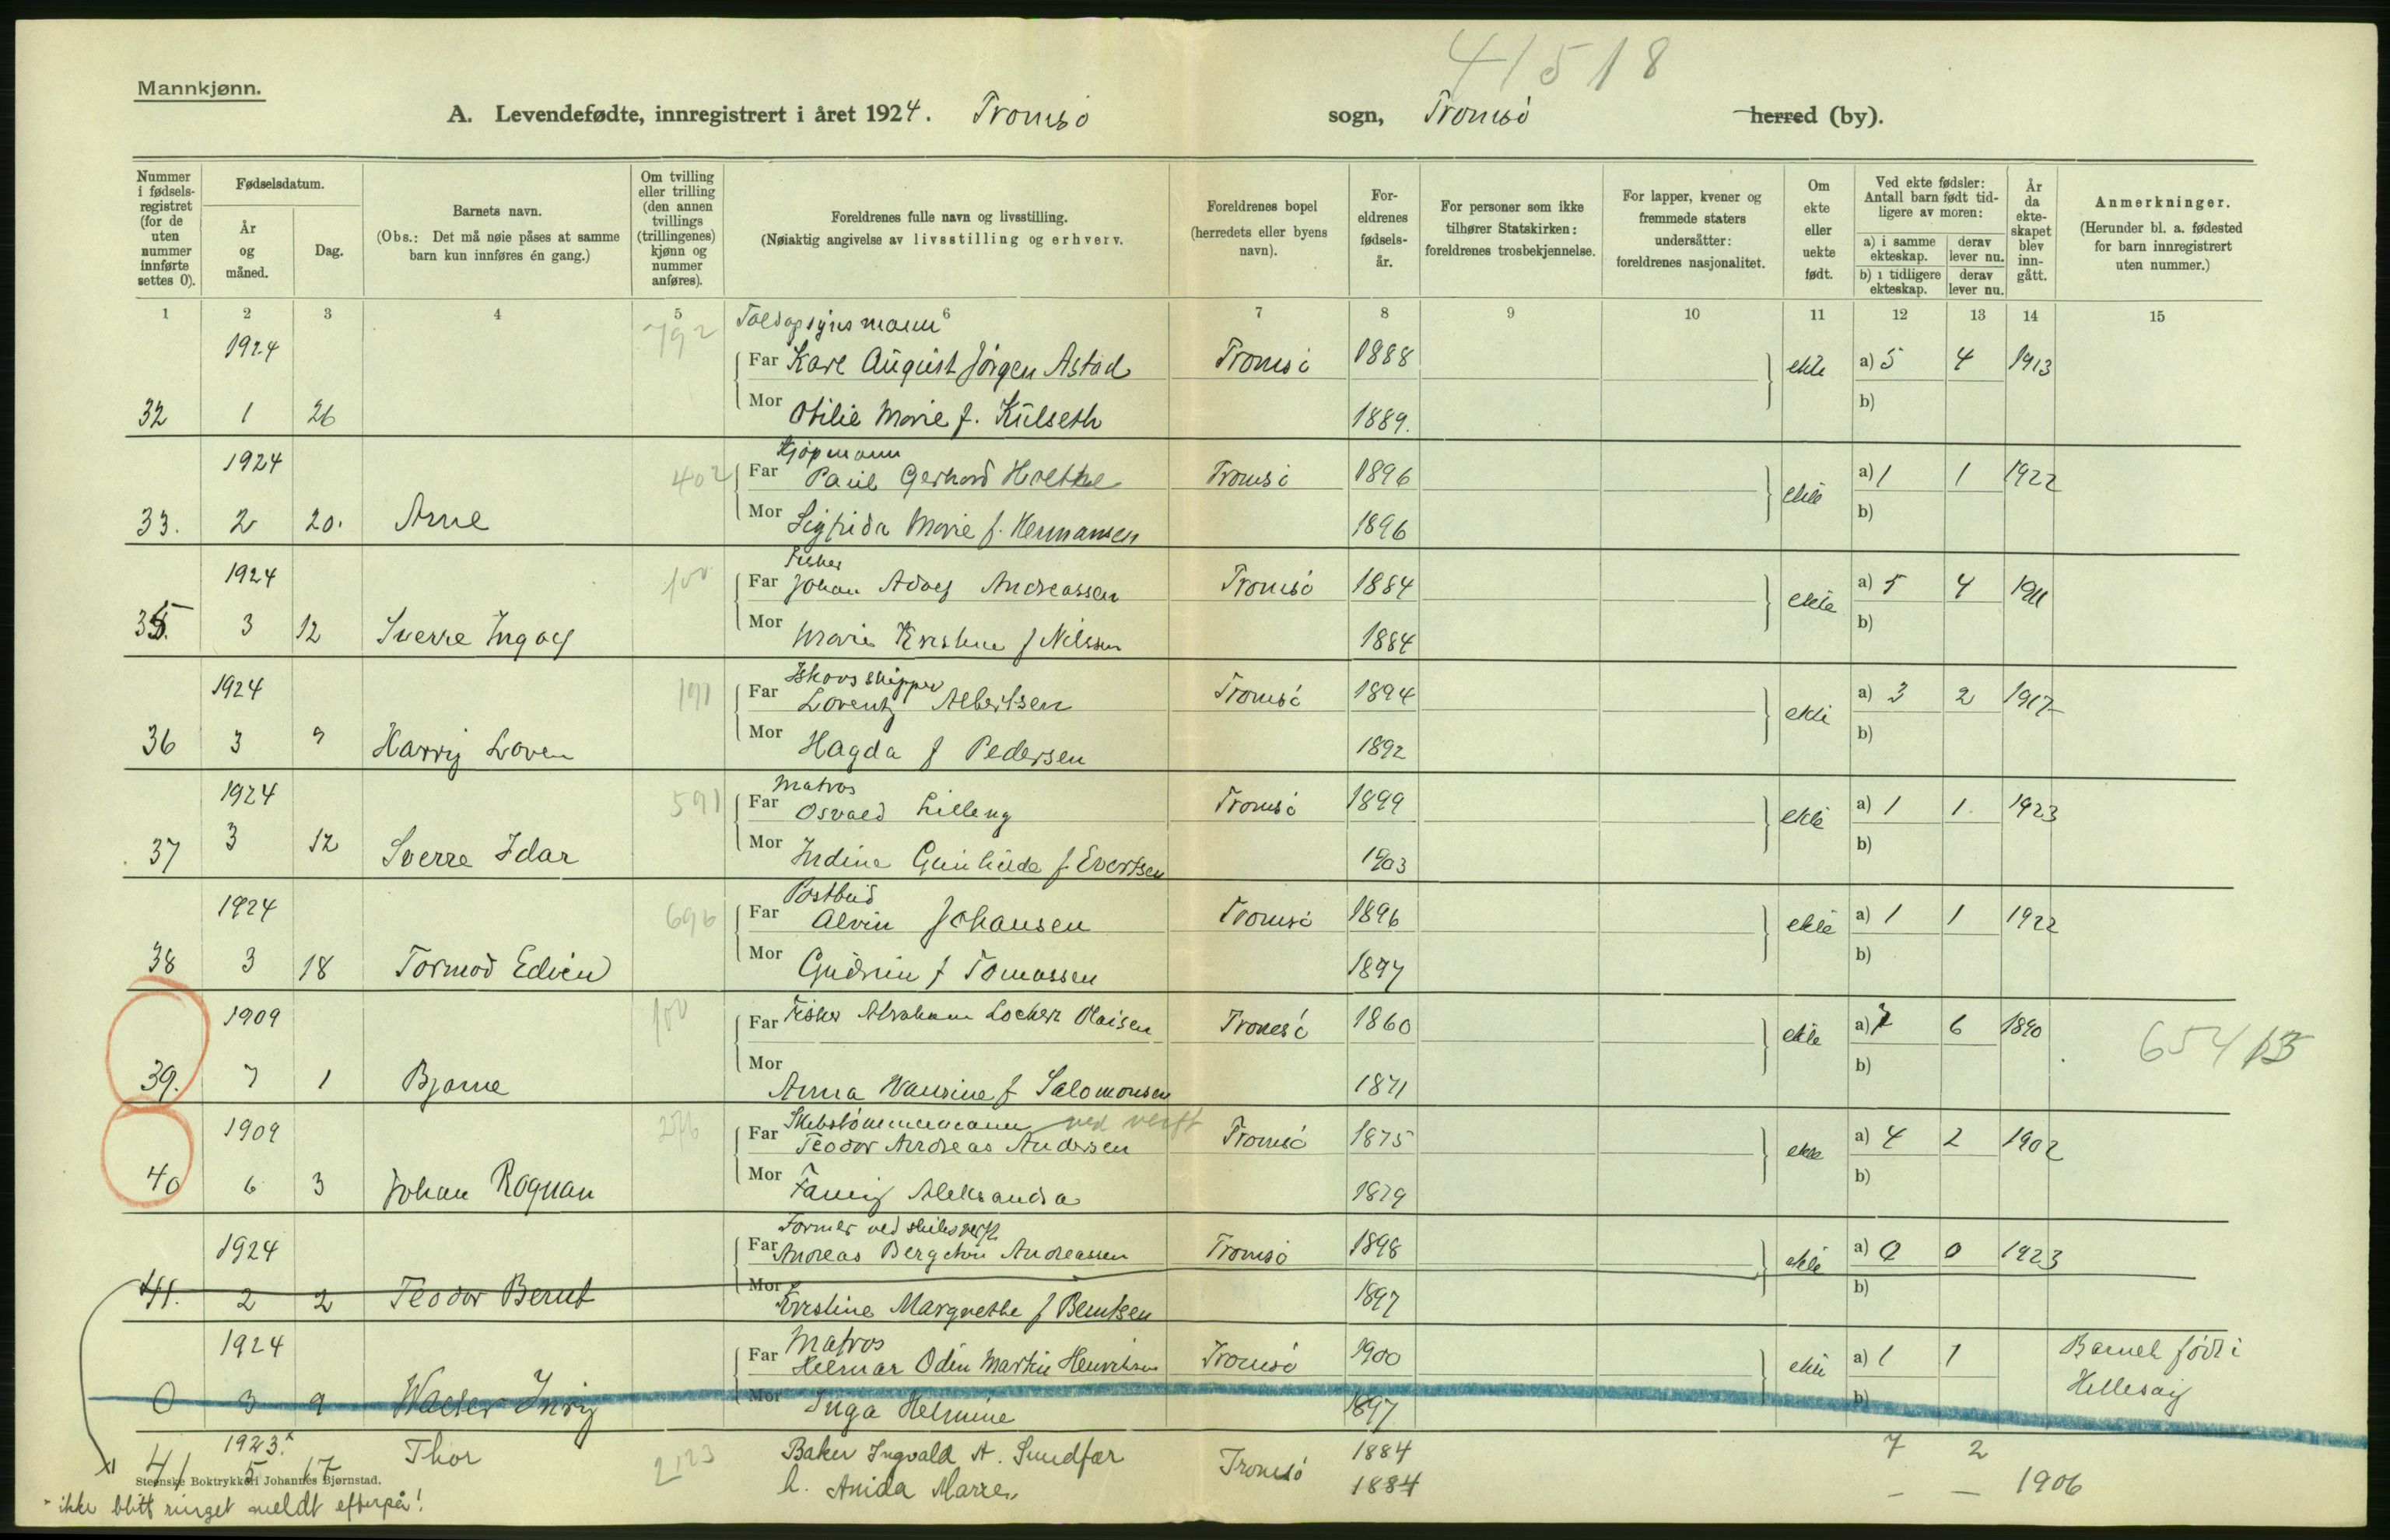 41518
Mannkjønn.
A. Levendefødte, innregistrert i året 1924. Tromsö sogn, Tromsö herred (by).
Nummer i fødsels-registret (for de uten nummer innførte settes 0).
Fødselsdatum.
År og måned.
Dag.
Barnets navn.
(Obs.: Det må nøie påses at samme barn kun innføres én gang.)
Om tvilling eller trilling (den annen tvillings (trillingenes) kjønn og nummer anføres).
Foreldrenes fulle navn og livsstilling.
(Nøiaktig angivelse av livsstilling og erhverv.
Foreldrenes bopel (herredets eller byens navn).
For-eldrenes fødsels-år.
For personer som ikke tilhører Statskirken: foreldrenes trosbekjennelse.
For lapper, kvener og fremmede staters undersåtter: foreldrenes nasjonalitet.
Om ekte eller uekte født.
Ved ekte fødsler: Antall barn født tid-ligere av moren:
a) i samme ekteskap. derav lever nu.
b) i tidligere ekteskap. derav lever nu.
År da ekte-skapet blev inn-gått.
Anmerkninger.
(Herunder bl. a. fødested for barn innregistrert uten nummer.)
1 2 3 4 5 6 7 8 9 10 11 12 13 14 15
792 Toldopsynsmann
1924 Far Karl August Jörgen Astad Tromsö 1888 ekte a) 5 4 1913
32 1 26 Mor Otilie Marie f. Kulseth 1889. b)
Kjöpmann
1924 402 Far Paul Gerhard Holthe Tromsö 1896 ekte a) 1 1 1922
33. 2 20. Arne Mor Sigfrida Marie f. Hermansen 1896 b)
Fisker
1924 100 Far Johan Adolf Andreassen Tromsö 1884 ekte a) 5 4 1911
35. 3 12 Sverre Ingolf Mor Marie Kristine f Nilssen 1884 b)
Ishavsskipper
1924 191 Far Lorentz Albertsen Tromsö 1894 ekte a) 3 2 1917
36 3 9 Harry Loven Mor Hagda f Pedersen 1892 b)
Matros
1924 591 Far Osvald Lilleng Tromsö 1899 ekte a) 1 1. 1923
37 3 12 Sverre Idar Mor Indine Gunhilde f Evertsen 1903 b)
Postbud
1924 696 Far Alvin Johansen Tromsö 1896 ekte a) 1 1 1922
38 3 18 Tormod Edvin Mor Gudrun f Tomassen 1897 b)
1909 100 Far Fisker Abraham Lockert Olaisen Tromsö 1860 ekte a) 7 6 1890 65413
39. 7 1 Bjarne Mor Anna Hansine f Salomonsen 1871 b)
Skibstömmermann ved verft
1909 276 Far Teodor Andreas Andersen Tromsö 1875 ekte a) 4 2 1902
40 6 3 Johan Rognan Mor Fanny Aleksandra 1879 b)
Former ved skibsverft
1924 Far Andreas Bergeton Andreassen Tromsö 1898 ekte a) 0 0 1923
41. 2 2 Teodor Bernt Mor Kristine Margrethe f Berntsen 1897 b)
Matros
1924 Far Helmar Odin Martin Henriksen Tromsö 1900 ekte a) 1 1 Barnet födt i
0 3 9 Mor Inga Helmine 1897 b) Hillesöy
1923.× Thor 2123 Baker Ingvald A. Sundfær Tromsö 1884 7 2
41 5 17 h. Anida Marie 1884 – – 1906
Steenske Boktrykkeri Johannes Bjørnstad.
× ikke blitt ringet meldt efterpå!